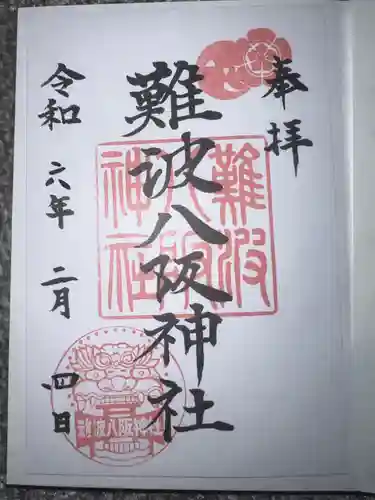 奉拝
難波八阪神社
令和六年二月四日
難波
八阪
神社
難波八阪神社